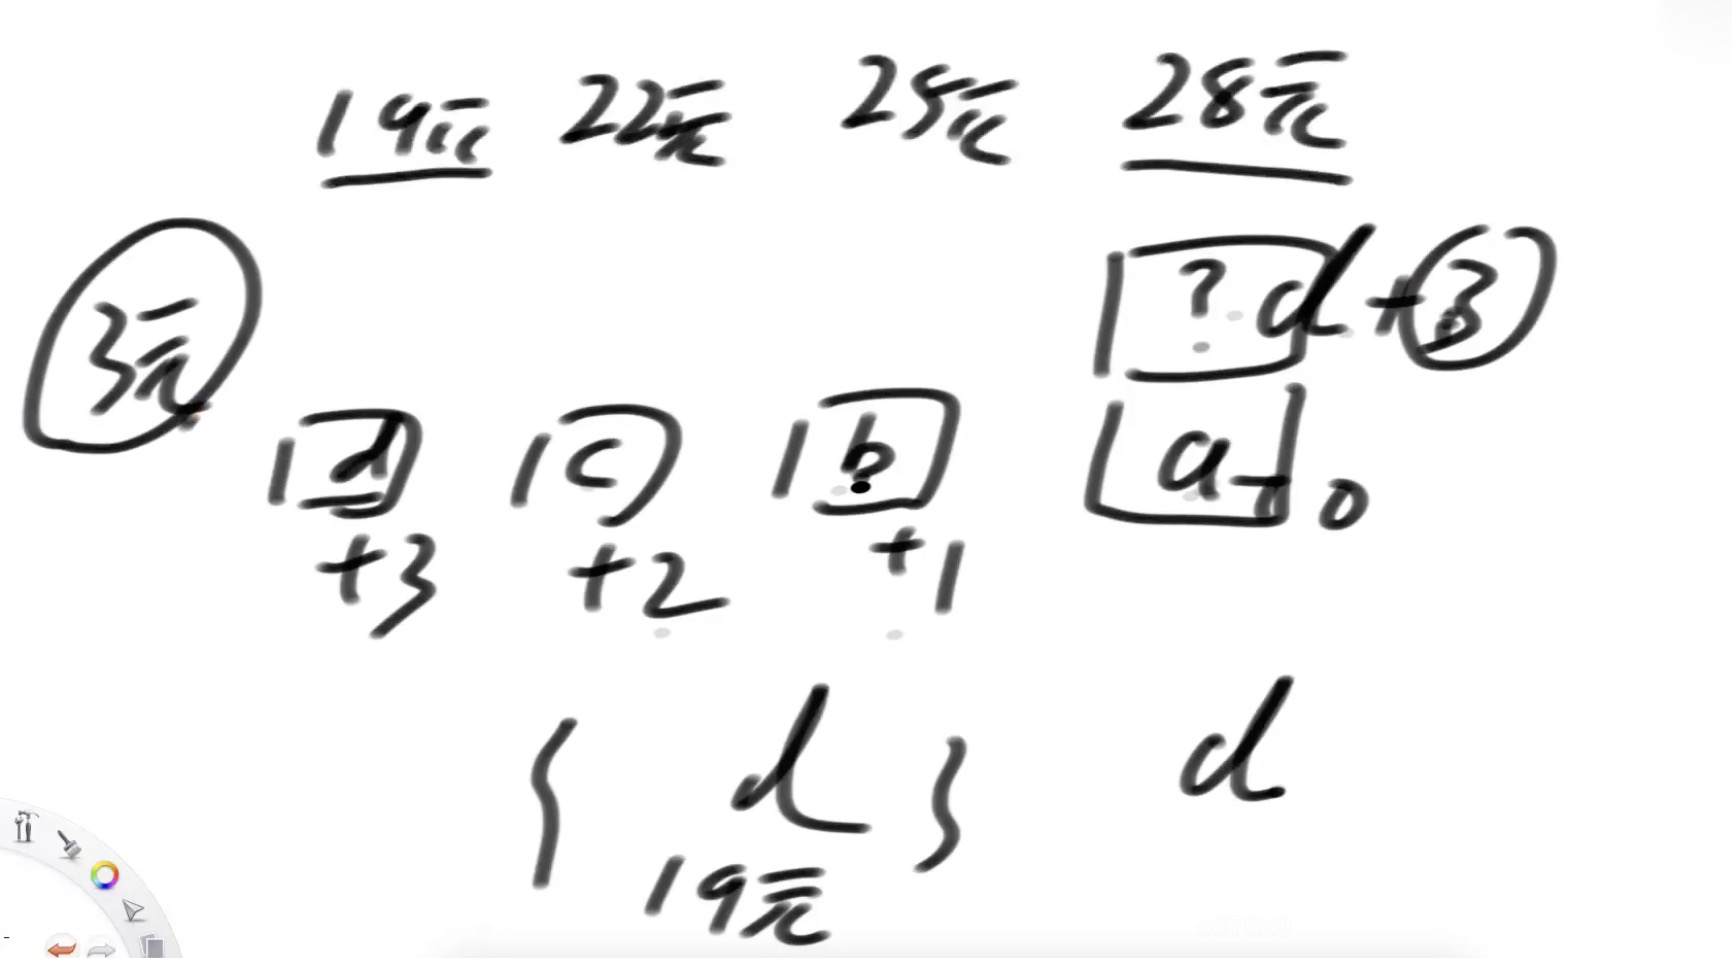 19元 22元 25元 28元
3元 ? d+3
d c b a+0
+3 +2 +1
{ d } d
19元